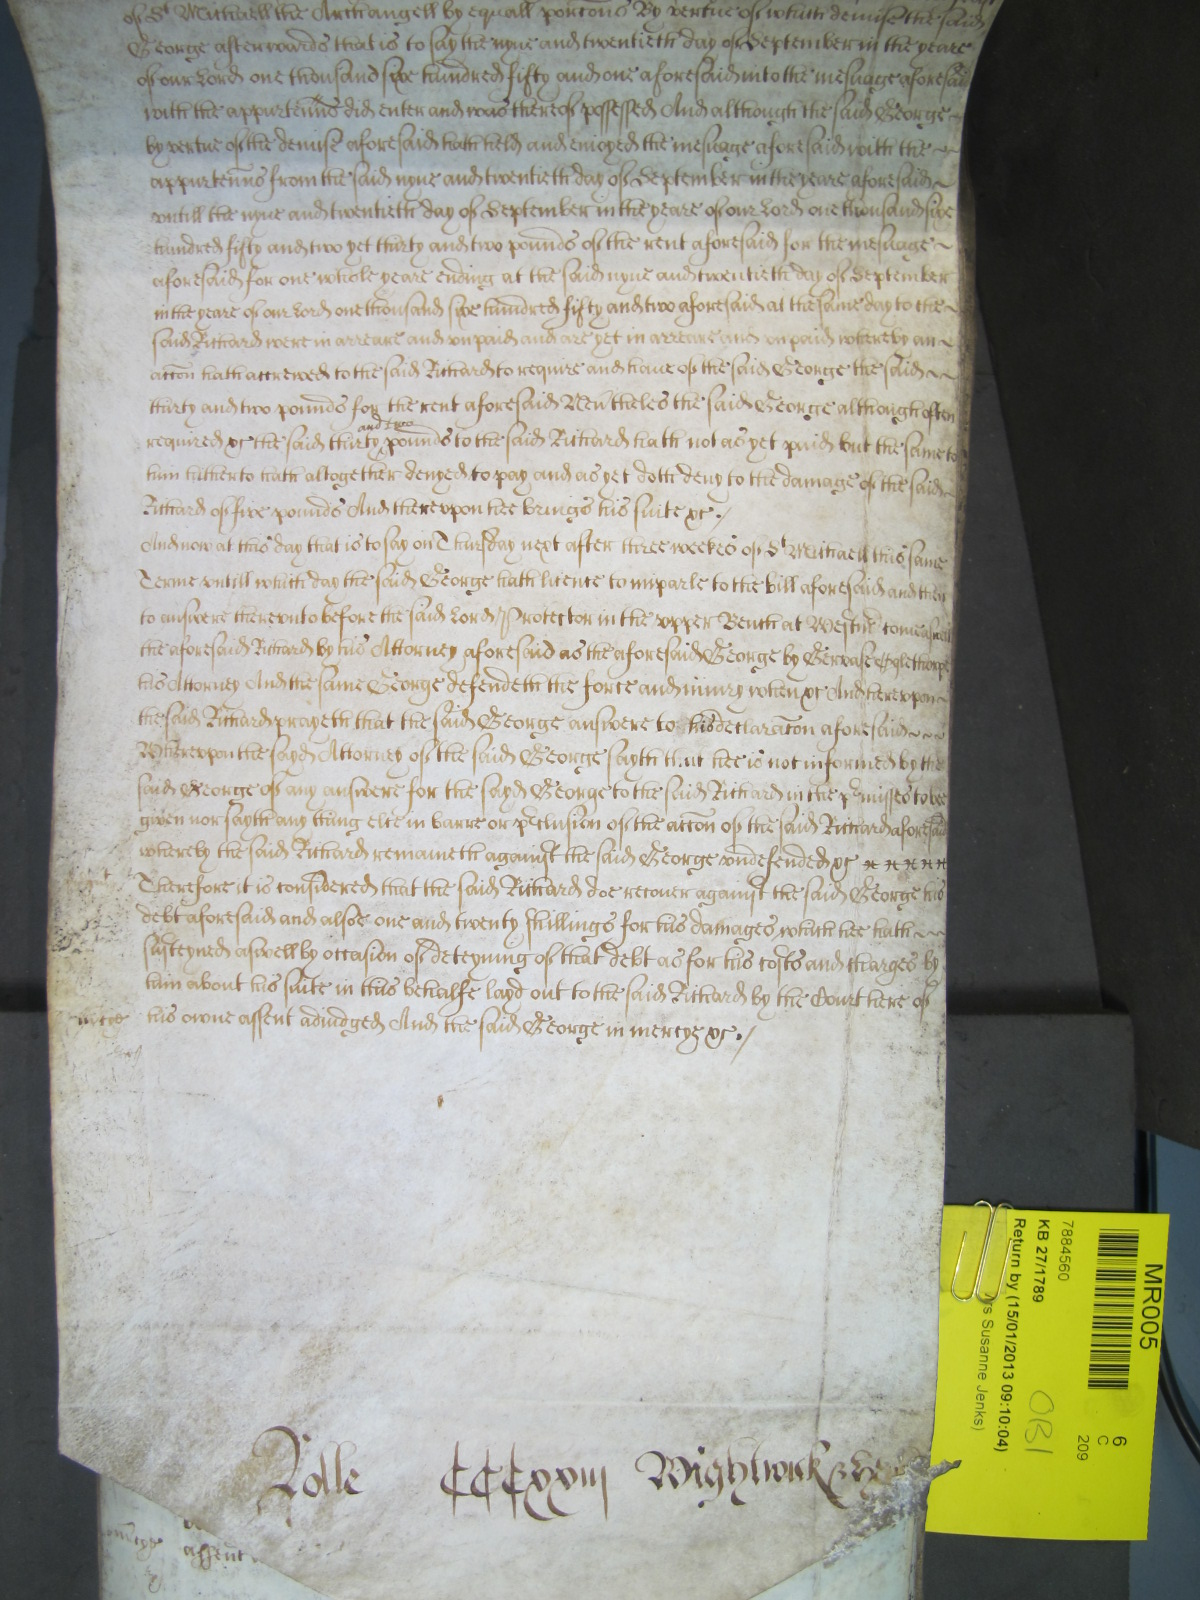 of St Michaell the Archangell by equall porcons By vertue of which demise the said
George afterwards that is to say the nyne and twentieth day of September in the yeare
of our Lord one thousand sixe hundred fifty and one aforesaid into the mesuage aforesaid
with the appurtenns did enter and was thereof possessed And although the said George
by vertue of the demise aforesaid hath held and enioyed the mesuage aforesaid with the
appurtenns from the said nyne and twentieth day of September in the yeare aforesaid
vntill the nyne and twentieth day of September in the yeare of our Lord one thousand sixe
hundred fifty and two yet thirty and two pounds of the rent aforesaid for the mesuage
aforesaid for one whole yeare ending at the said nyne and twentieth day of September
in the yeare of our Lord one thousand sixe hundred fifty and two aforesaid at the same day to the
said Richard were in arreare and vnpaid and are yet in arreare and vnpaid whereby an
accon hath accrewed to the said Richard to require and haue of the said George the said
thirty and two pounds for the rent aforesaid Neu'theles the said George although often
required &c the said thirty and two pounds to the said Richard hath not as yet paid but the same to
him hitherto hath altogether denyed to pay and as yet doth deny to the damage of the said
Richard of five pounds And therevpon hee brings his suite &c
And now at this day that is to say on Thursday next after three weekes of St Michaell this same
Terme vntill which day the said George hath licence to imparle to the bill aforesaid and then
to answere therevnto before the said Lord Protector in the vpper Bench at Westm come aswell
the aforesaid Richard by his Attorney aforesaid as the aforesaid George by Gervase
his Attorney And the same George defendeth the force and iniury when &c And therevpon
the said Richard prayeth that the said George answere to his declaracon aforesaid
Wherevpon the sayd Attorney of the said George sayth that hee is not informed by the
said George of any answere for the sayd George to the said Richard in the p'misses to bee
given nor sayth any thing else in barre or p'clusion of the accon of the said Richard aforesaid
whereby the said Richard remaineth against the said George vndefended &c
Therefore it is considered that the said Richard doe recouer against the said George his
debt aforesaid and alsoe one and twenty shillings for his damages which hee hath
susteyned aswell by occasion of deteyning of that debt as for his costs and charges by
him about his suite in this behalfe layd out to the said Richard by the Court here of
his owne assent adiudged And the said George in mercye &c
Rolle CCCxxiij Wightwick
assent
MR005
6
C
209
7884560
KB 27/1789
Return by (15/01/2013 09:10:04)
Susanne Jenks)
OBI